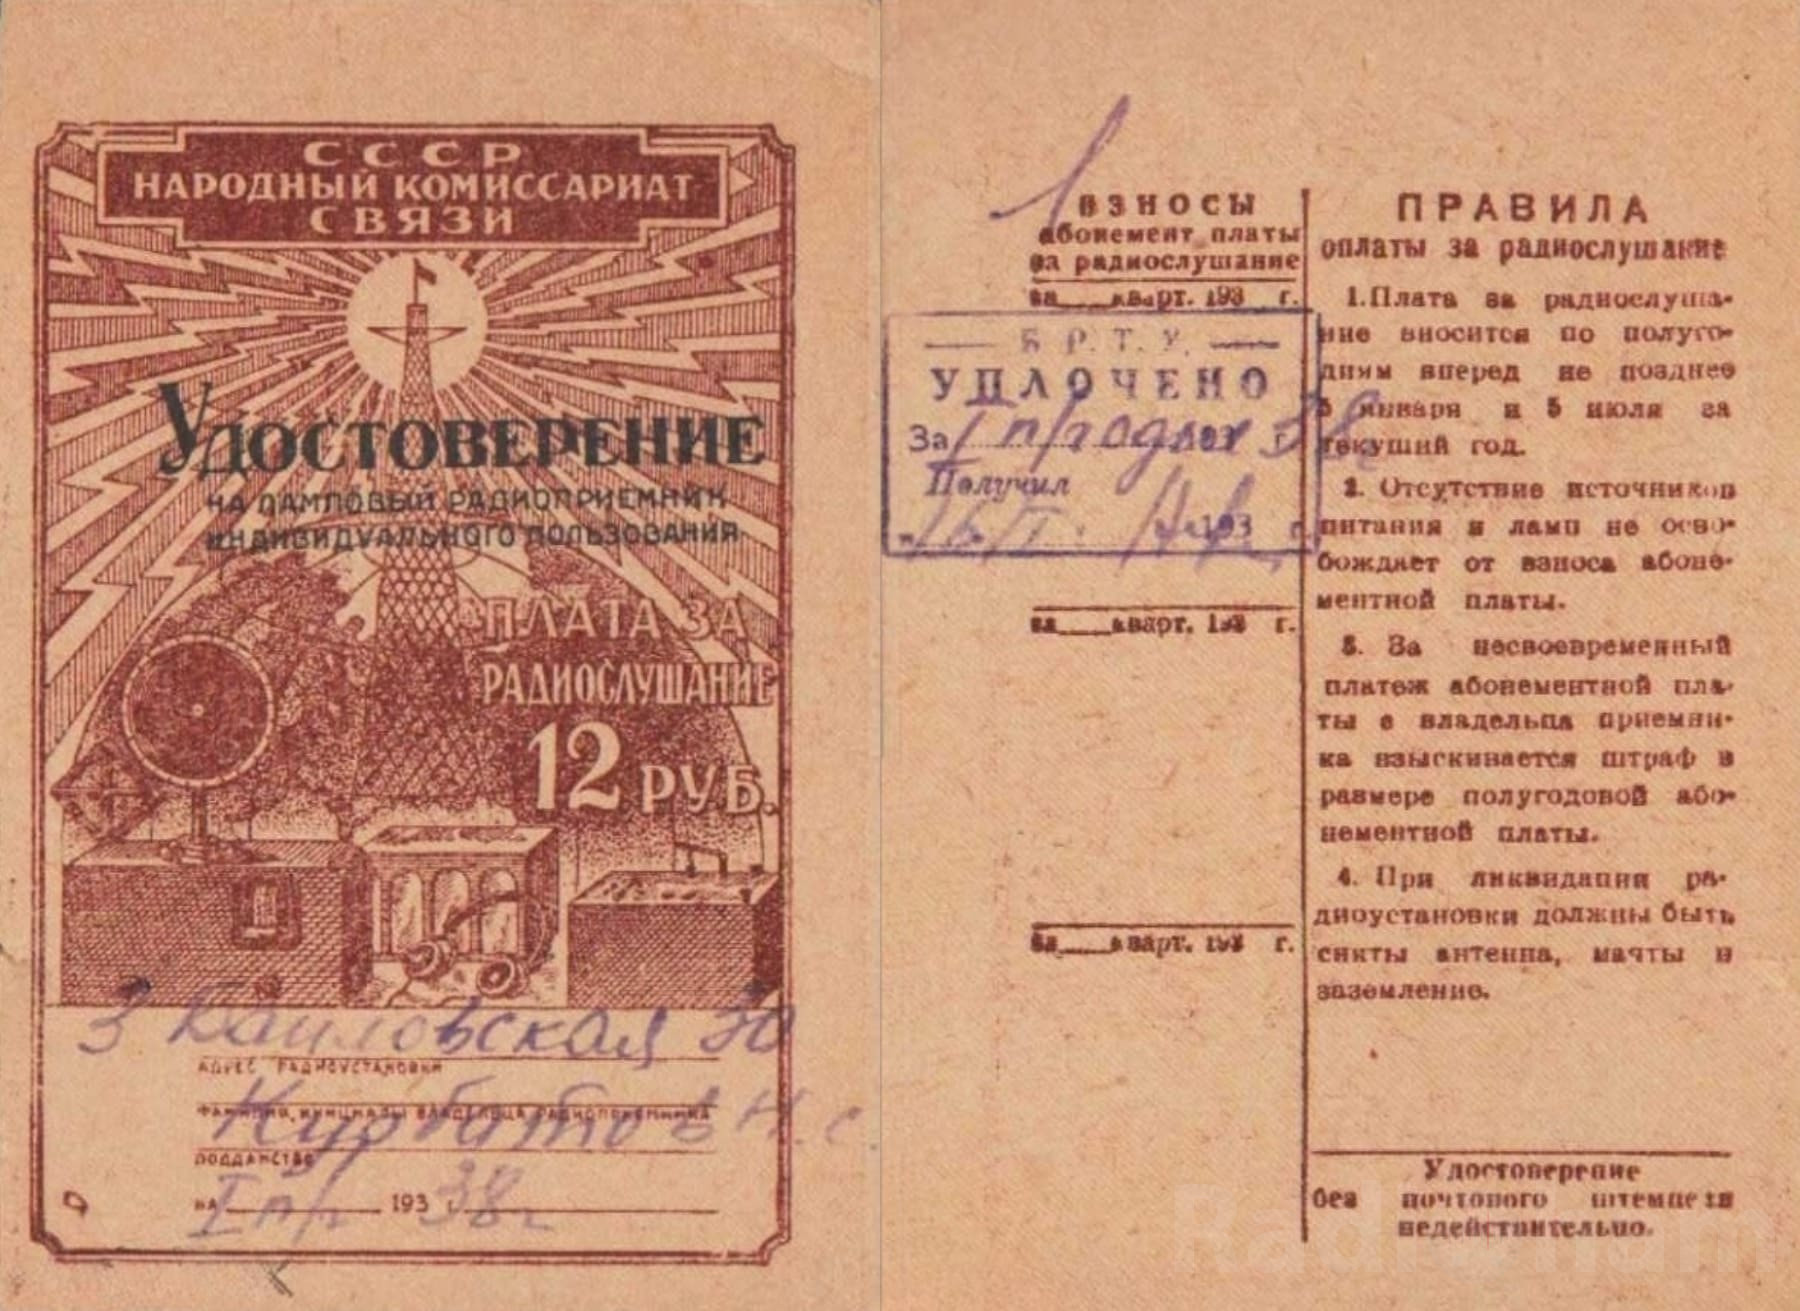 СССР
НАРОДНЫЙ КОМИССАРИАТ
СВЯЗИ
УДОСТОВЕРЕНИЕ
НА ЛАМПОВЫЙ РАДИОПРИЕМНИК
ИНДИВИДУАЛЬНОГО ПОЛЬЗОВАНИЯ
ПЛАТА ЗА
РАДИОСЛУШАНИЕ
12 РУБ.
3 30
АДРЕС РАДИОУСТАНОВКИ
Курбатов Н. С.
ФАМИЛИЯ, ИНИЦИАЛЫ ВЛАДЕЛЬЦА РАДИОПРИЕМНИКА
ПОДДАНСТВО
НА I п/г 193 38г
ВЗНОСЫ
абонемент платы
за радиослушание
за___кварт. 193 г.
Б. Р. Т. У.
УПЛОЧЕНО
За I п/годие 193 г. 38г
Получил
193 г.
за___кварт. 193 г.
за___кварт. 193 г.
ПРАВИЛА
оплаты за радиослушание
1. Плата за радиослуша-
ние вносится по полуго-
диям вперед не позднее
5 января и 5 июля за
текущий год.
2. Отсутствие источников
питания и ламп не осво-
бождает от взноса абоне-
ментной платы.
3. За несвоевременный
платеж абонементной пла-
ты с владельца приемни-
ка взыскивается штраф в
размере полугодовой або-
нементной платы.
4. При ликвидации ра-
диоустановки должны быть
сняты антенна, мачты и
заземление.
Удостоверение
без почтового штемпеля
недействительно.
Radionum